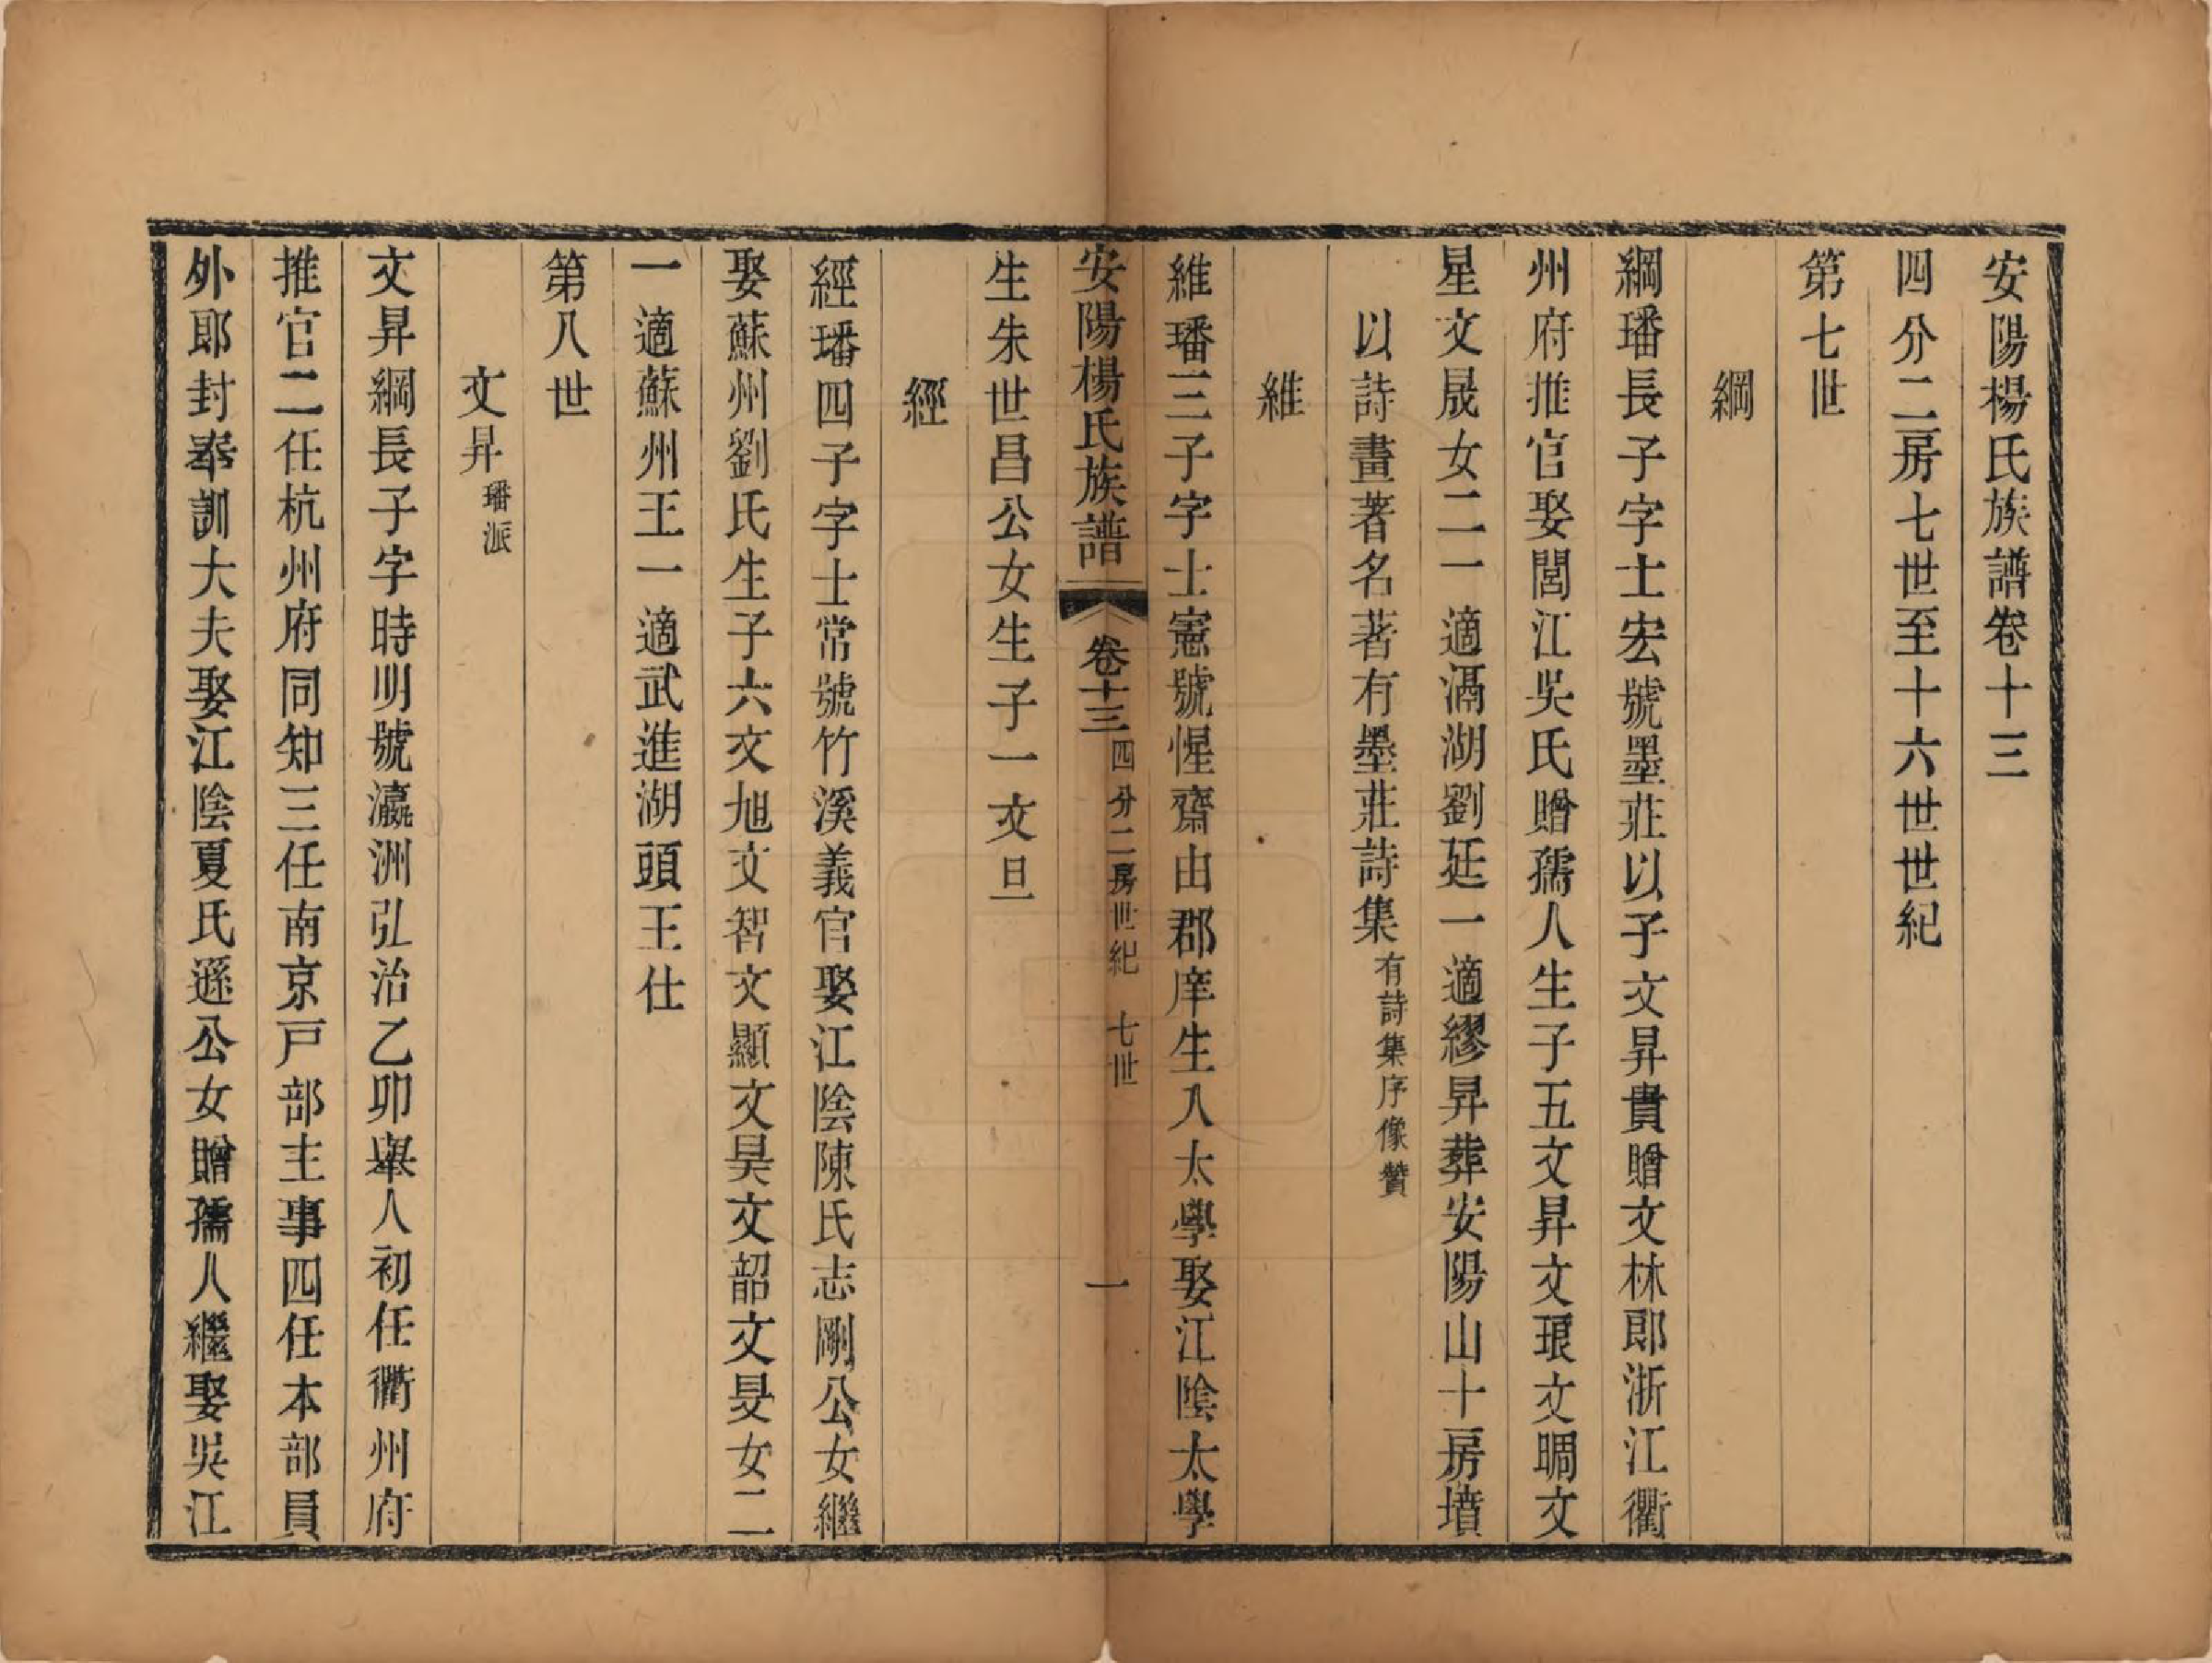 安陽楊氏族譜卷十三
四分二房七世至十六世世紀
第七世
綱
綱璠長子字士宏號墨莊以子文昇貴贈文林郎浙江衢
州府推官娶閶江吳氏贈孺人生子五文昇文琅文晭文
星文晟女二一適滆湖劉廷一適繆昇葬安陽山十房墳
以詩畫著名著有墨莊詩集有詩集序像贊
維
維璠三子字士憲號惺齋由郡庠生入太學娶江陰太學
安陽楊氏族譜 卷十三 四分二房世紀 七世 一
生朱世昌公女生子一文旦
經
經璠四子字士常號竹溪義官娶江陰陳氏志剛公女繼
娶蘇州劉氏生子六文旭文智文顯文昊文韶文旻女二
一適蘇州王一適武進湖頭王仕
第八世
文昇璠派
文昇綱長子字時明號瀛洲弘治乙卯舉人初任衢州府
推官二任杭州府同知三任南京戸部主事四任本部員
外郎封奉訓大夫娶江陰夏氏遜公女贈孺人繼娶吳江